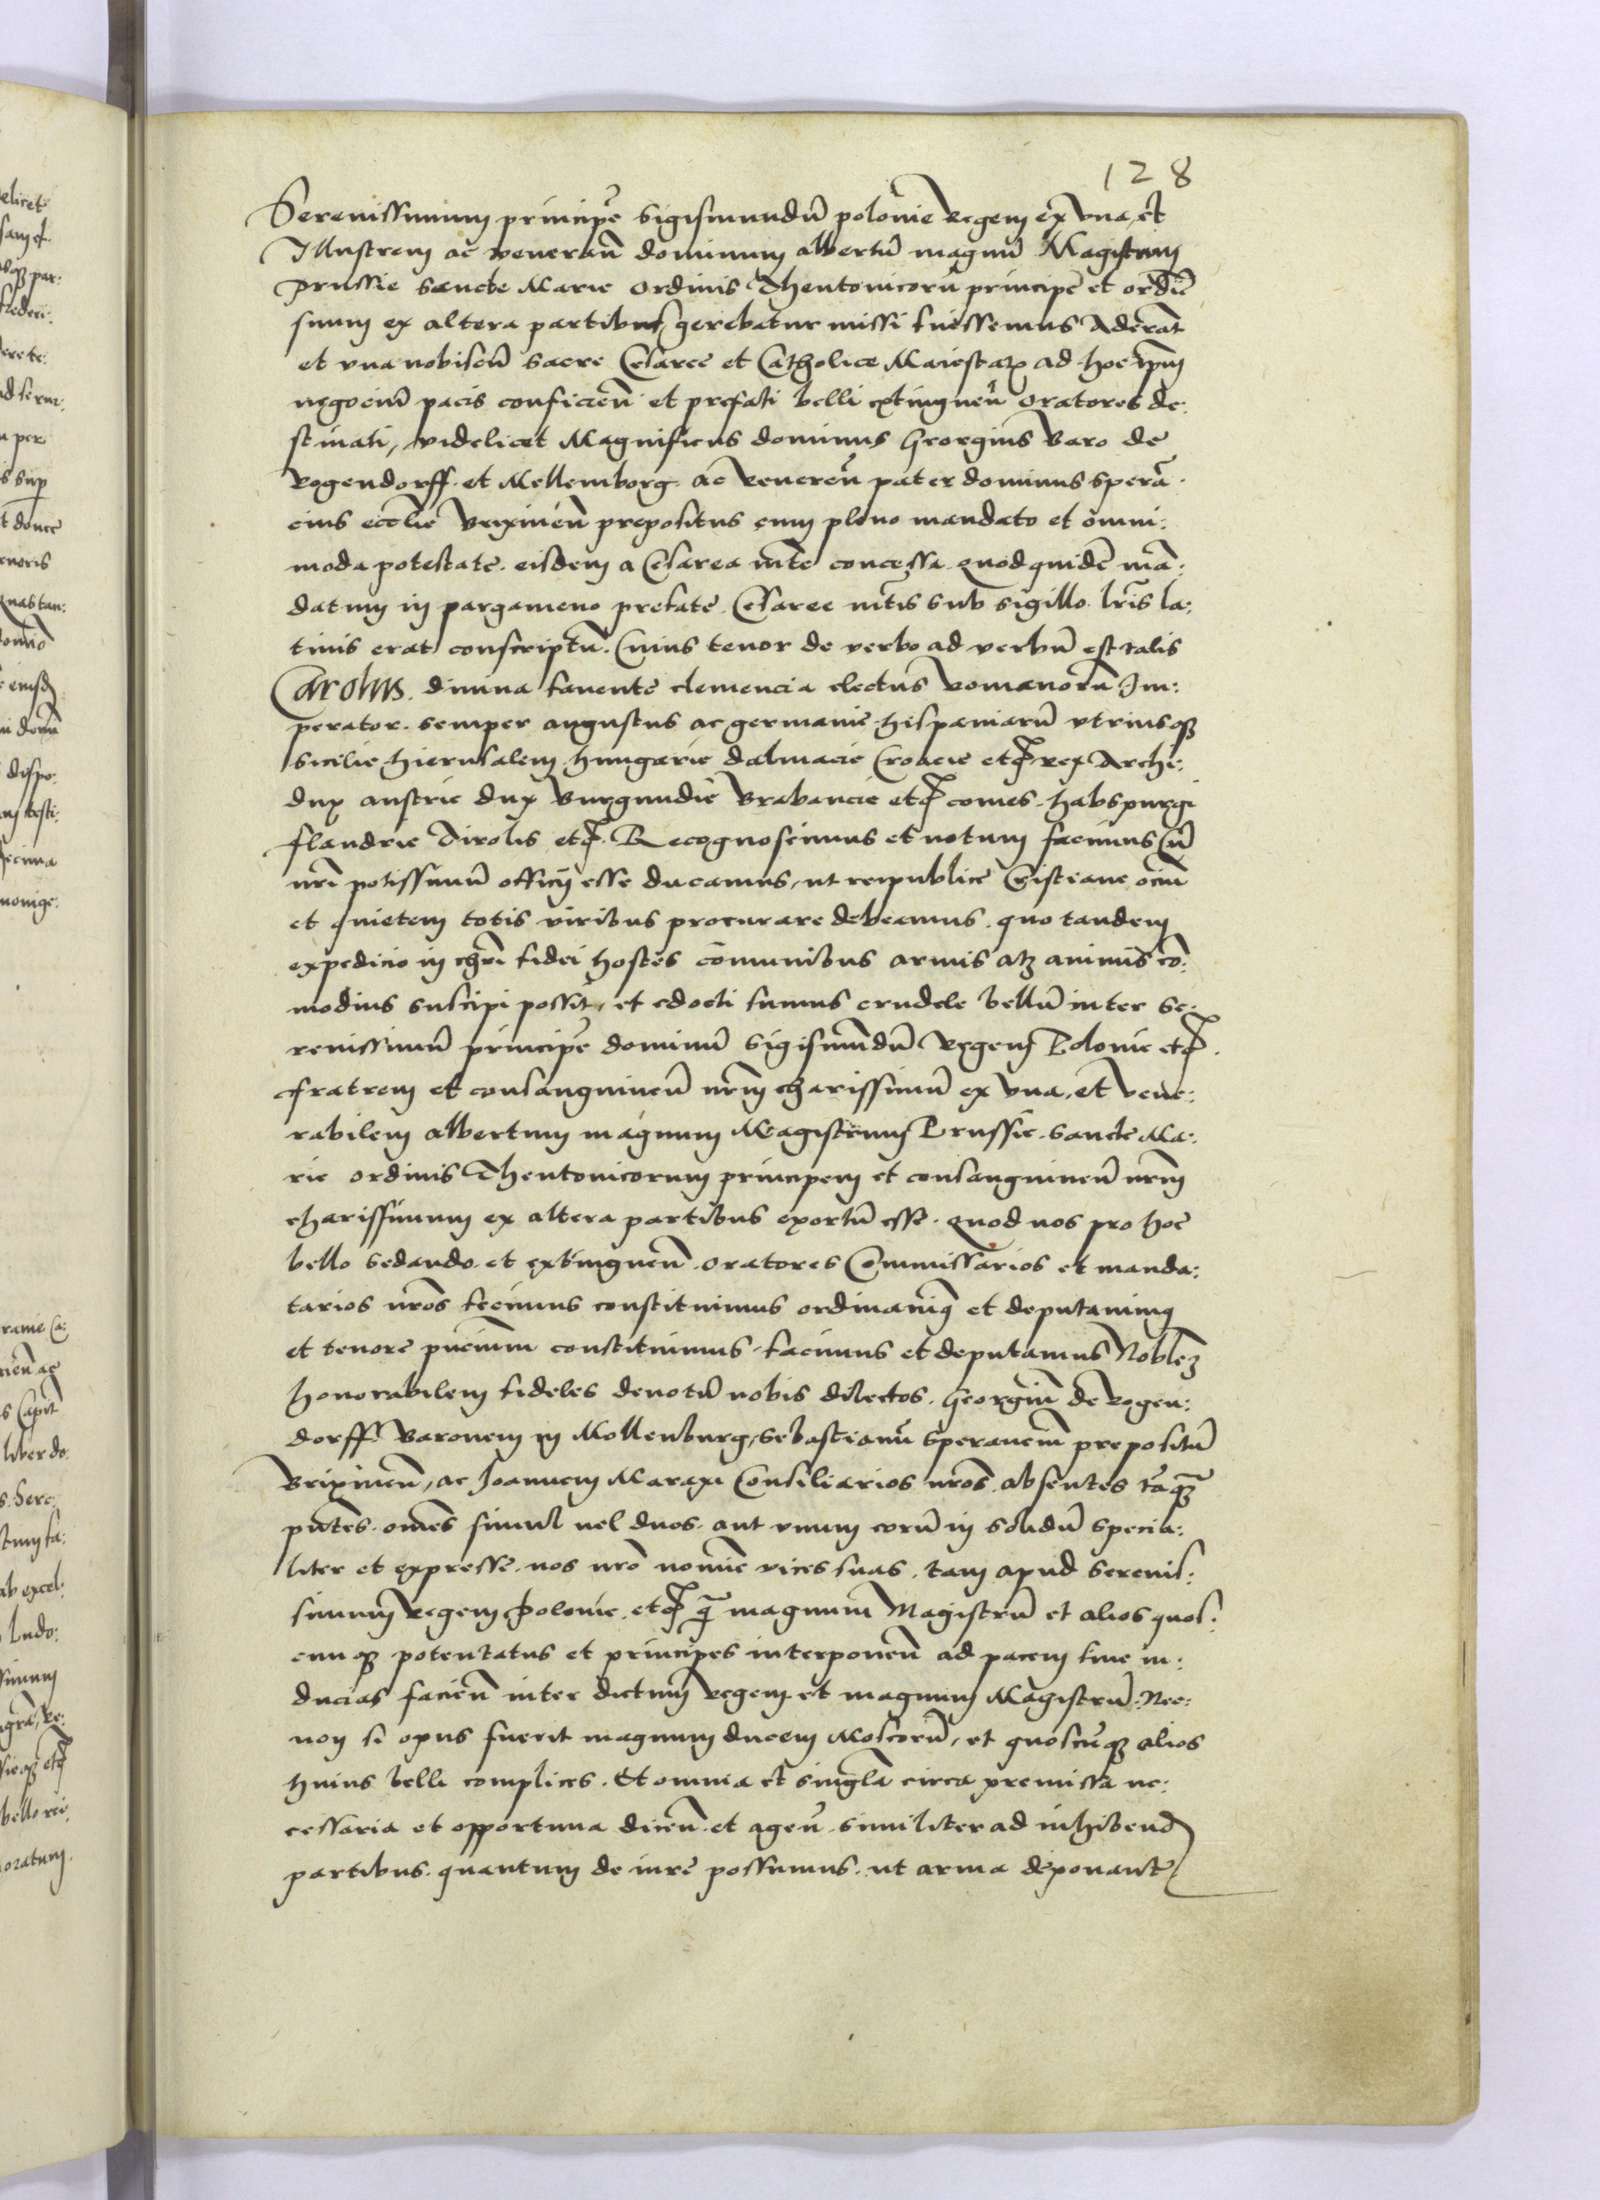 128
Serenissimum principē Sigismundū polonie regem ex vna, et
Illustrem ac veneran̄ dominum albertū magnū Magistrum
prussie sancte Marie ordinis Theutonicorū principē et ordīē
suum ex altera partibus, gerebatur missi fuissemus Aderāt
et vna nobiscū sacre Cesaree et Catholice Maiestatꝭ ad hoc ip̄m
negociū pacis conficien̄ et prefati belli extinguen̄ oratores de:
stinati, videlicet Magnificus dominus Georgius Baro de
Rogendorff et Mellemborg ac veneren̄ pater dominus sperā:
cius ecclie Brixinen̄ prepositus cum pleno mandato et omni:
moda potestate eisdem a Cesarea mte concessa quod quidē mā:
datum in pargameno prefate Cesaree mtis sub sigillo lr̄is la:
tinis erat conscriptū. Cuius tenor de verbo ad verbū est talis
Carolus. diuina fauente clemencia electus romanorū Im:
perator semper augustus ac germanie hispaniarū vtriusqꝫ
Sicilie hierusalem hungarie dalmacie Croacie etc rex Archi:
dux austrie dux Burgundie Brabancie etc comes habspurgi
flandrie Tirolis etc. Recognoscimus et notum facimus Cū
nr̄i potissimū officij esse ducamus, ut reipublice Cristiane ociū
et quietem totis viribus procurare debeamus quo tandem
expedicio in chr̄i fidei hostes cōmunibus armis atꝫ animis cō:
modius suscipi possit, et edocti sumus crudele bellū inter Se:
renissimū principē dominū Sigismūdū Regem Polonie etc.
fratrem et consanguineū nr̄m charissimū ex vna, et vene:
rabilem albertum magnum Magistrum Prussie sancte Ma:
rie ordinis Theutonicorum principem et consanguineū nr̄m
charissimum ex altera partibus exortū esse. quod nos pro hoc
bello sedando et extinguen̄ oratores Commissarios et manda:
tarios nr̄os fecimus constituimus ordinauimꝰ et deputauimꝰ
et tenore pn̄cium constituimus facimus et deputamus Noblēꝫ
honorabilem fideles deuotū nobis dilectos. Georgiū de Rogen:
dorff Baronem in Mollenburg, Sebastianū Speranciū prepositū
Brixinen̄, ac Joannem Maraxi Consiliarios nr̄os absentes tāqꝫ
pn̄tes. om̄es simul vel duos aut vnum eorū in solidū specia:
liter et expresse nos nr̄o nomine vices suas tam apud Serenis:
simum Regem Polonie etc qꝫ magnum Magistrū et alios quos:
cunqꝫ potentatus et principes interponen̄ ad pacem siue in:
ducias facien̄ inter dictum regem et magnum Magistrū. Nec:
non si opus fuerit magnum ducem Moscorū, et quoscūqꝫ alios
huius belli complices. Et omnia et singla circa premissa ne:
cessaria et opportuna dicen̄ et agen̄ similiter ad inhibend̄
partibus quantum de iure possumus ut arma deponant